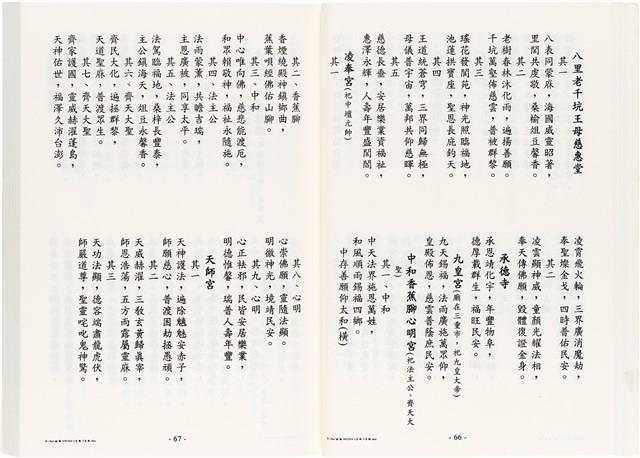 八里老千坑王母慈惠堂
其一
八表同蒙庥，海國威靈昭著，
里閭共虔敬，桑榆俎豆馨香。
其二
老樹春林沐化雨，遍揚善願。
千坑萬壑佈慈雲，普被群黎。
其三
瑤花發閬苑，神光照臨福地，
池蓮拱寶座，聖恩長庇鈞天。
其四
王道統蒼穹，三界同歸無極，
母儀普宇宙，萬邦共仰慈暉。
其五
慈德長垂，安居樂業資福祉，
惠澤永輝，人壽年豐盛閭閻。
凌奉宮(祀中壇元帥)
其一
凌霄飛火輪，三界廣消魔劫，
奉聖燦金戈，四時普佑民安。
其二
凌雲顯神威，童顏光耀法相，
奉天傳佛願，毀體復證金身。
承德寺
承恩靖化宇，年豐物阜，
德厚載群生，福旺民安。
九皇宮(廟在三重市，祀九皇大帝)
九天錫福，法雨廣施萬眾仰，
皇殿佈恩，慈雲普蔭庶民安。
中和香蕉腳心明宮(祀法主公、齊天大
聖)
其一、中和
中天法界施恩萬姓，
和風順雨錫福四鄉。
中存善願仰太和(橫)
- 66 -
其二、香蕉腳
香煙繞殿神鎮鄉曲，
蕉葉唄經佛佑山腳。
其三、中和
中心唯向佛，慈悲能渡厄，
和眾賴敬神，福祉永隨施。
其四、法主公
法雨蒙薰，共瞻吉瑞，
主恩廣被，同享太平。
其五、法主公
法駕臨福地，桑梓長豐泰，
主公鎮海天，俎豆永馨香。
其六、齊天大聖
齊民大化，遍拯群黎，
天道聖庥，普渡眾生。
其七、齊天大聖
齊家護國，靈威赫濯蓬島，
天神佑世，福澤久沛台澎。
其八、心明
心崇佛願，靈隨法顯。
明徹神光，境靖民安。
其九、心明
心正袪邪，民皆安居樂業，
明德惟馨，瑞普人壽年豐。
天師宮
其一
天神護法，遍除魑魅安赤子，
師願慈心，普渡困劫拯愚頑。
其二
天威赫濯，三教玄黃歸真宰，
師恩浩蕩，五方雨露屬靈庥。
其三
天功法顯，德容端肅龍虎伏，
師嚴道尊，聖靈咤叱鬼神驚。
- 67 -